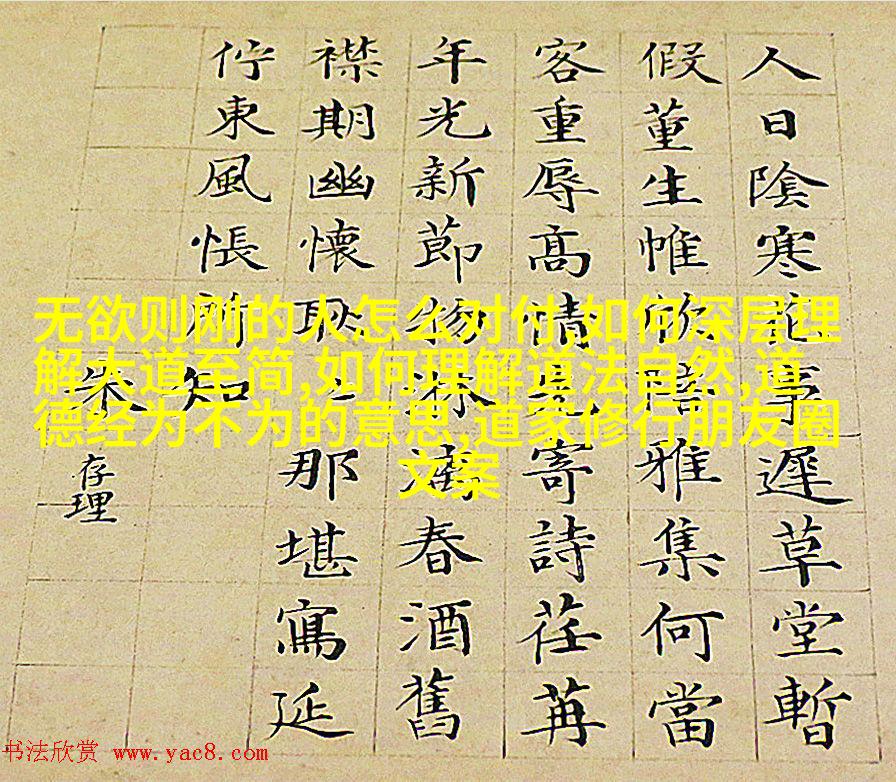 人日陰寒花事遲草堂暫
假董生帷欣陪雅集何當
客重辱高情先寄詩荏苒
年光新節物淋漓春酒舊
襟期幽懷耿〻那堪寫延
佇東風悵所知
朱存理
无欲则刚的人怎么对付,如何深层理
解大道至简,如何理解道法自然,道
德经为不为的意思,道家修行朋友圈
文案
书法欣赏 www.yac8.com